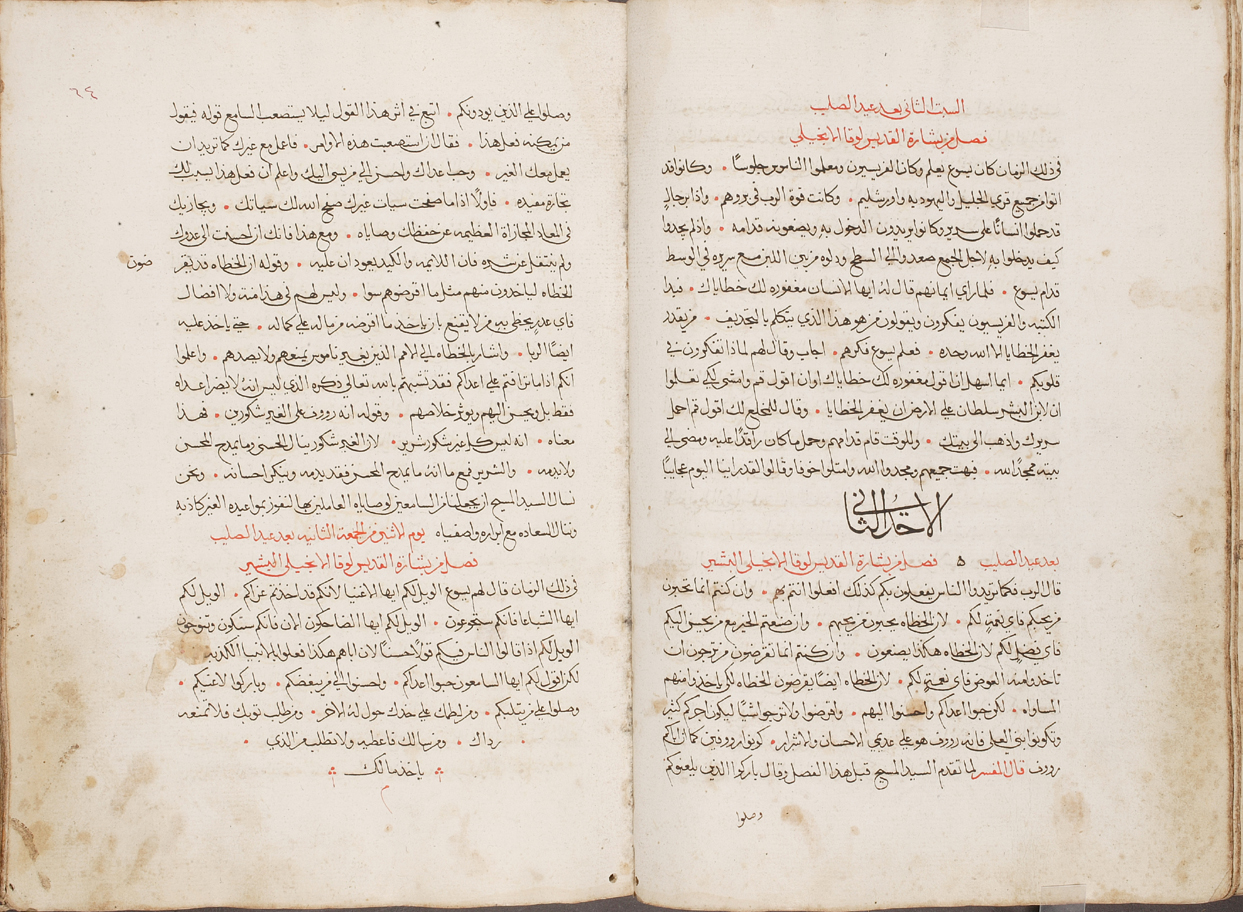 السبت الثانى بعد عيد الصليب
فصل من بشارة القديس لوقا الانجيلي
فى ذلك الزمان كان يسوع يعلم وكان الفريسيون ومعلموا الناموس جلوسًا • وكانوا قد
اتوا من جميع قرى الجليل واليهوديه واورشليم • وكانت قوة الرب فى بروهم • واذا برجال
قد حملوا انسانًا على سرير وكانوا يريدون الدخول به ويضعونه قدامه • واذ لم يجدوا
كيف يدخلوا به لاجل الجمع صعدوا الى السطح ودلوه من بين اللبن مع سريره فى الوسط
قدام يسوع • فلما راى ايمانهم قال له ايها الانسان مغفوره لك خطاياك • فبدا
الكتبه والفريسيون يفكرون ويقولون من هو هذا الذي يتكلم بالتجديف • من يقدر
يغفر الخطايا الا الله وحده • فعلم يسوع فكرهم • اجاب وقال لهم لماذا تفكرون فى
قلوبكم • ايما اسهل ان اقول مغفوره لك خطاياك او ان اقول قم وامشى لكي تعلموا
ان لابن البشر سلطان على الارض ان يغفر الخطايا • وقال للمخلع لك اقول قم احمل
سريرك واذهب الى بيتك • وللوقت قام قدامهم وحمل ما كان راقدًا عليه ومضى الى
بيته ممجدًا الله • فبهت جميعهم ومجدوا الله وامتلوا خوفا وقالوا لقد راينا اليوم عجايبًا
الاحد الثانى
بعد عيد الصليب ه فصل من بشارة القديس لوقا الانجيلى البشير
قال الرب فكما تريدوا الناس يفعلون بكم كذلك افعلوا انتم بهم • وان كنتم انما تحبون
من يحبكم فاي نعمة لكم • لان الخطاه يحبون من يحبهم • وان صنعتم الخير مع من يحسن اليكم
فاي فضل لكم لان الخطاه هكذا يصنعون • وان كنتم انما تقرضون من ترجون ان
تاخدوا منه العوض فاي نعمة لكم • لان الخطاه ايضًا يقرضون الخطاه لكي ياخدوا منهم
المساواه • لكن حبوا اعداكم واحسنوا اليهم • واقرضوا ولا ترجوا شيًا ليكون اجركم كثير
وتكونوا بني العلى فانه رووف هو على عديمي الاحسان والاشرار • كونوا رووفين كما ان اباكم
رووف قال المفسر لما تقدم السيد المسيح قبل هذا الفصل وقال باركوا الذين يلعنوكم
وصلوا
٦٤
وصلوا على الذين يودونكم • اتبع فى اثر هذا القول ليلا يستصعب السامع قوله فيقول
من يمكنه فعل هذا • فقال ان استصعبت هذه الاوامر • فاعمل مع غيرك كما تريد ان
يعمل معك الغير • وحب اعداك واحسن الى من يسى اليك واعلم ان فعل هذا يسبب لك
تجارة مفيده • فاولًا اذا ما صفحت سيات غيرك صفح الله لك سياتك • ويجازيك
فى المعاد المجازاة العظيمه عن حفظك وصاياه • ومع هذا فانك ان احسنت الى عدوك
ولم ينتقل عن شره فان اللايمه والكيد يعودان عليه • وقوله ان الخطاه قد تقر
ضون
الخطاه لياخدون منهم مثل ما اقرضوهم سوا • وليس لهم فى هذا منة ولا افضال
فاي عدم يحظى به من لا يقنع بان ياخذ ما اقرضه من ماله على كماله • حتى ياخذ عليه
ايضًا الربا • واشار بالخطاه الى الامم الذين بغير ناموس يمنعهم ولا يصدهم • واعلموا
انكم اذا ما ترافتم على اعداكم فقد تشبهتم بالله تعالى ذكره الذي ليس انهُ لا يضر اعداه
فقط بل ويحسن اليهم ويوثر خلاصهم • وقوله انه رووف على الغير شكورين • فهذا
معناه • انه ليس كل غير شكور شرير • لان الغير شكور ينال الحسنى وما يمدح المحسن
ولا يذمه • والشرير فمع ما انهُ ما يمدح المحسن فقد يذمه وينكر احسانه • ونحن
نسال السيد المسيح ان يجعلنا من السامعين لوصاياه العاملين بها لنفوز بمواعيده الغير كاذبه
وننال السعاده مع ابراره واصفياه يوم الاثنين من الجمعة الثانيه بعد عيد الصليب
فصل من بشارة القديس لوقا الانجيلى البشير
فى ذلك الزمان قال لهم يسوع الويل لكم ايها الاغنيا لانكم قد اخذتم عزاكم • الويل لكم
ايها الشباعا فانكم ستجوعون • الويل لكم ايها الضاحكون الان فانكم ستبكون وتنوحون
الويل لكم اذا قالوا الناس فيكم قولًا حسنًا لان اباهم هكذا فعلوا بالانبيا الكذبه
لكن اقول لكم ايها السامعون حبوا اعداكم • واحسنوا الى من يبغضكم • وباركوا لاعنيكم •
وصلوا على من يثلبكم • ومن لطمك على خدك حول له الاخر • ومن طلب ثوبك فلا تمنعه
• رداك • ومن سالك فاعطيه ولا تطلب من الذي •
ياخذ مالك